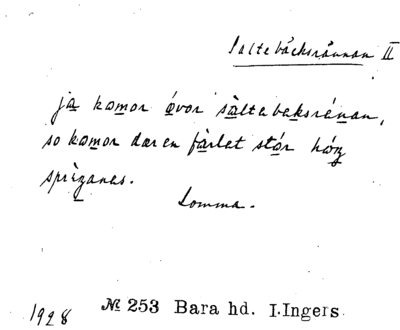 Saltebäcksrännan II
ja komor övor sàltebaksrénan,
so komor dær en fàrlet stór hóg
sprìzanes.
Lomma.
1928 № 253 Bara hd. I.Ingers